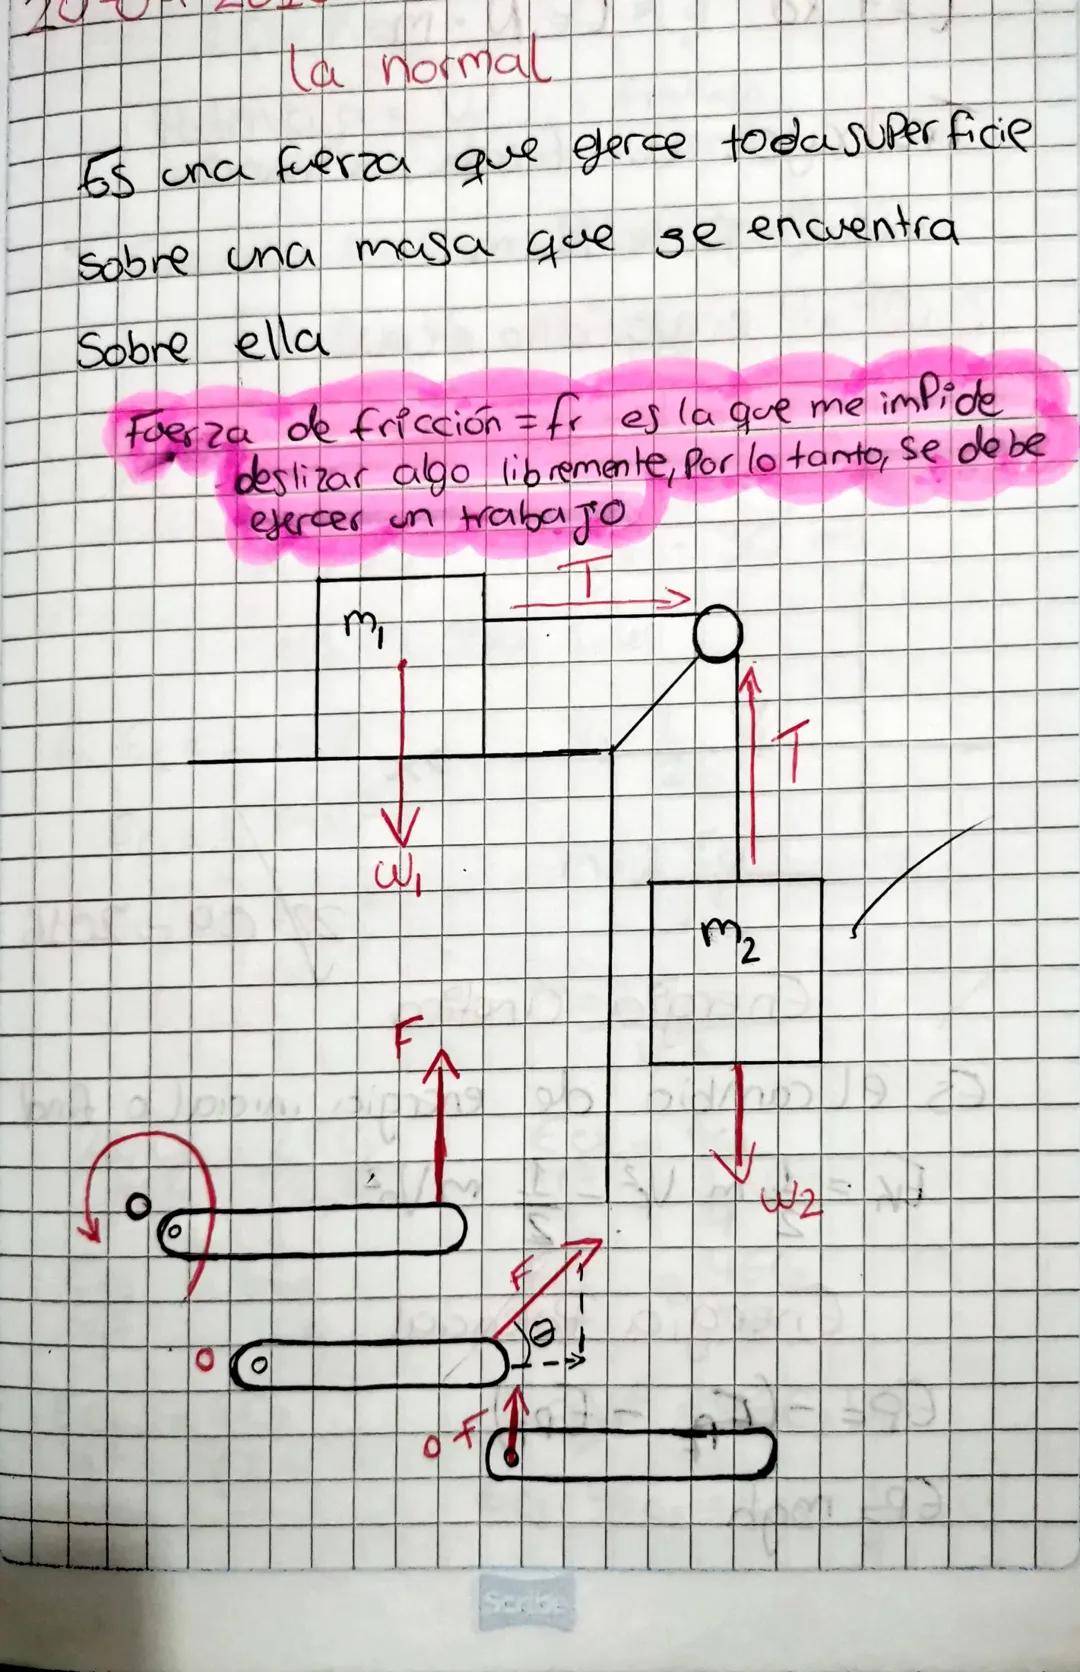 la normal
Es una fuerza que ejerce toda superficie
sobre una masa que se encuentra
Sobre ella
Fuerza de fricción = fr es la que me impide
deslizar algo libremente, Por lo tanto, se debe
ejercer un trabajo
T
m₁
T
W₁
m₂
F
W₂
O
F
θ
O
O F
Scribe